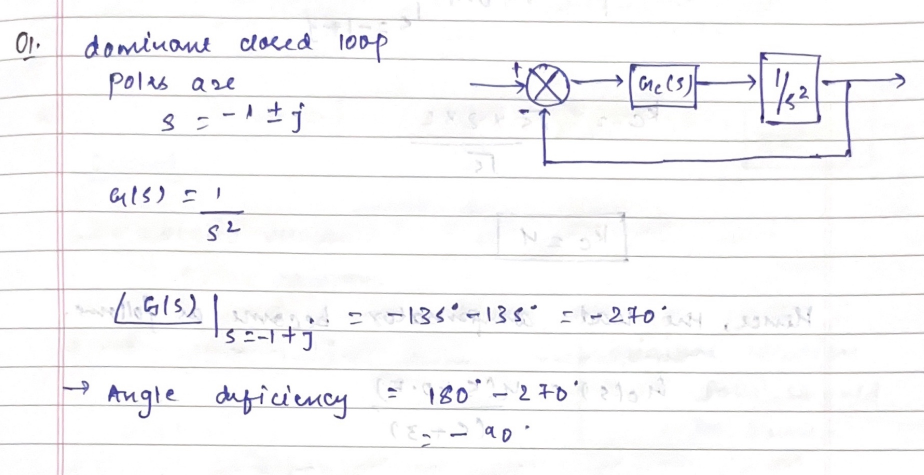 Q1. dominant closed loop
poles are
s = -1 ± j
+
-
Gc(s)
1/s²
G(s) = 1
s²
∠G(s) |s=-1+j = -135° -135° = -270°
→ Angle deficiency = 180° - 270°
= -90°